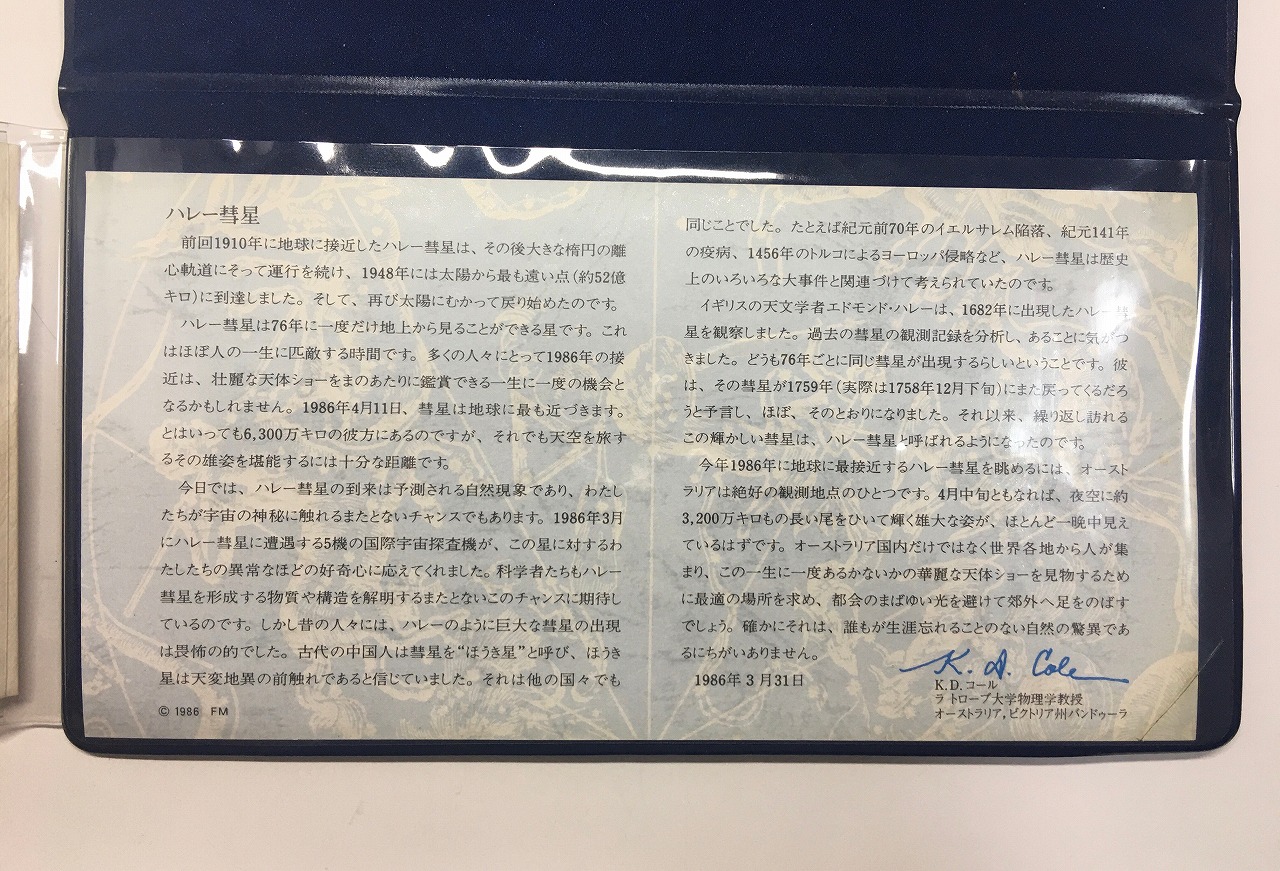 ハレー彗星
前回1910年に地球に接近したハレー彗星は、その後大きな楕円の離
心軌道にそって運行を続け、1948年には太陽から最も遠い点(約52億
キロ)に到達しました。そして、再び太陽にむかって戻り始めたのです。
ハレー彗星は76年に一度だけ地上から見ることができる星です。これ
はほぼ人の一生に匹敵する時間です。多くの人々にとって1986年の接
近は、壮麗な天体ショーをまのあたりに鑑賞できる一生に一度の機会と
なるかもしれません。1986年4月11日、彗星は地球に最も近づきます。
とはいっても6,300万キロの彼方にあるのですが、それでも天空を旅す
るその雄姿を堪能するには十分な距離です。
今日では、ハレー彗星の到来は予測される自然現象であり、わたし
たちが宇宙の神秘に触れるまたとないチャンスでもあります。1986年3月
にハレー彗星に遭遇する5機の国際宇宙探査機が、この星に対するわ
たしたちの異常なほどの好奇心に応えてくれました。科学者たちもハレー
彗星を形成する物質や構造を解明するまたとないこのチャンスに期待し
ているのです。しかし昔の人々には、ハレーのように巨大な彗星の出現
は畏怖の的でした。古代の中国人は彗星を“ほうき星”と呼び、ほうき
星は天変地異の前触れであると信じていました。それは他の国々でも
© 1986 FM
同じことでした。たとえば紀元前70年のイエルサレム陥落、紀元141年
の疫病、1456年のトルコによるヨーロッパ侵略など、ハレー彗星は歴史
上のいろいろな大事件と関連づけて考えられていたのです。
イギリスの天文学者エドモンド・ハレーは、1682年に出現したハレー彗
星を観察しました。過去の彗星の観測記録を分析し、あることに気がつ
きました。どうも76年ごとに同じ彗星が出現するらしいということです。彼
は、その彗星が1759年(実際は1758年12月下旬)にまた戻ってくるだろ
うと予言し、ほぼ、そのとおりになりました。それ以来、繰り返し訪れる
この輝かしい彗星は、ハレー彗星と呼ばれるようになったのです。
今年1986年に地球に最接近するハレー彗星を眺めるには、オースト
ラリアは絶好の観測地点のひとつです。4月中旬ともなれば、夜空に約
3,200万キロもの長い尾をひいて輝く雄大な姿が、ほとんど一晩中見え
ているはずです。オーストラリア国内だけではなく世界各地から人が集
まり、この一生に一度あるかないかの華麗な天体ショーを見物するため
に最適の場所を求め、都会のまばゆい光を避けて郊外へ足をのばす
でしょう。確かにそれは、誰もが生涯忘れることのない自然の驚異であ
るにちがいありません。
1986年3月31日
K. D. Cole
K.D.コール
ラ トローブ大学物理学教授
オーストラリア,ビクトリア州バンドゥーラ